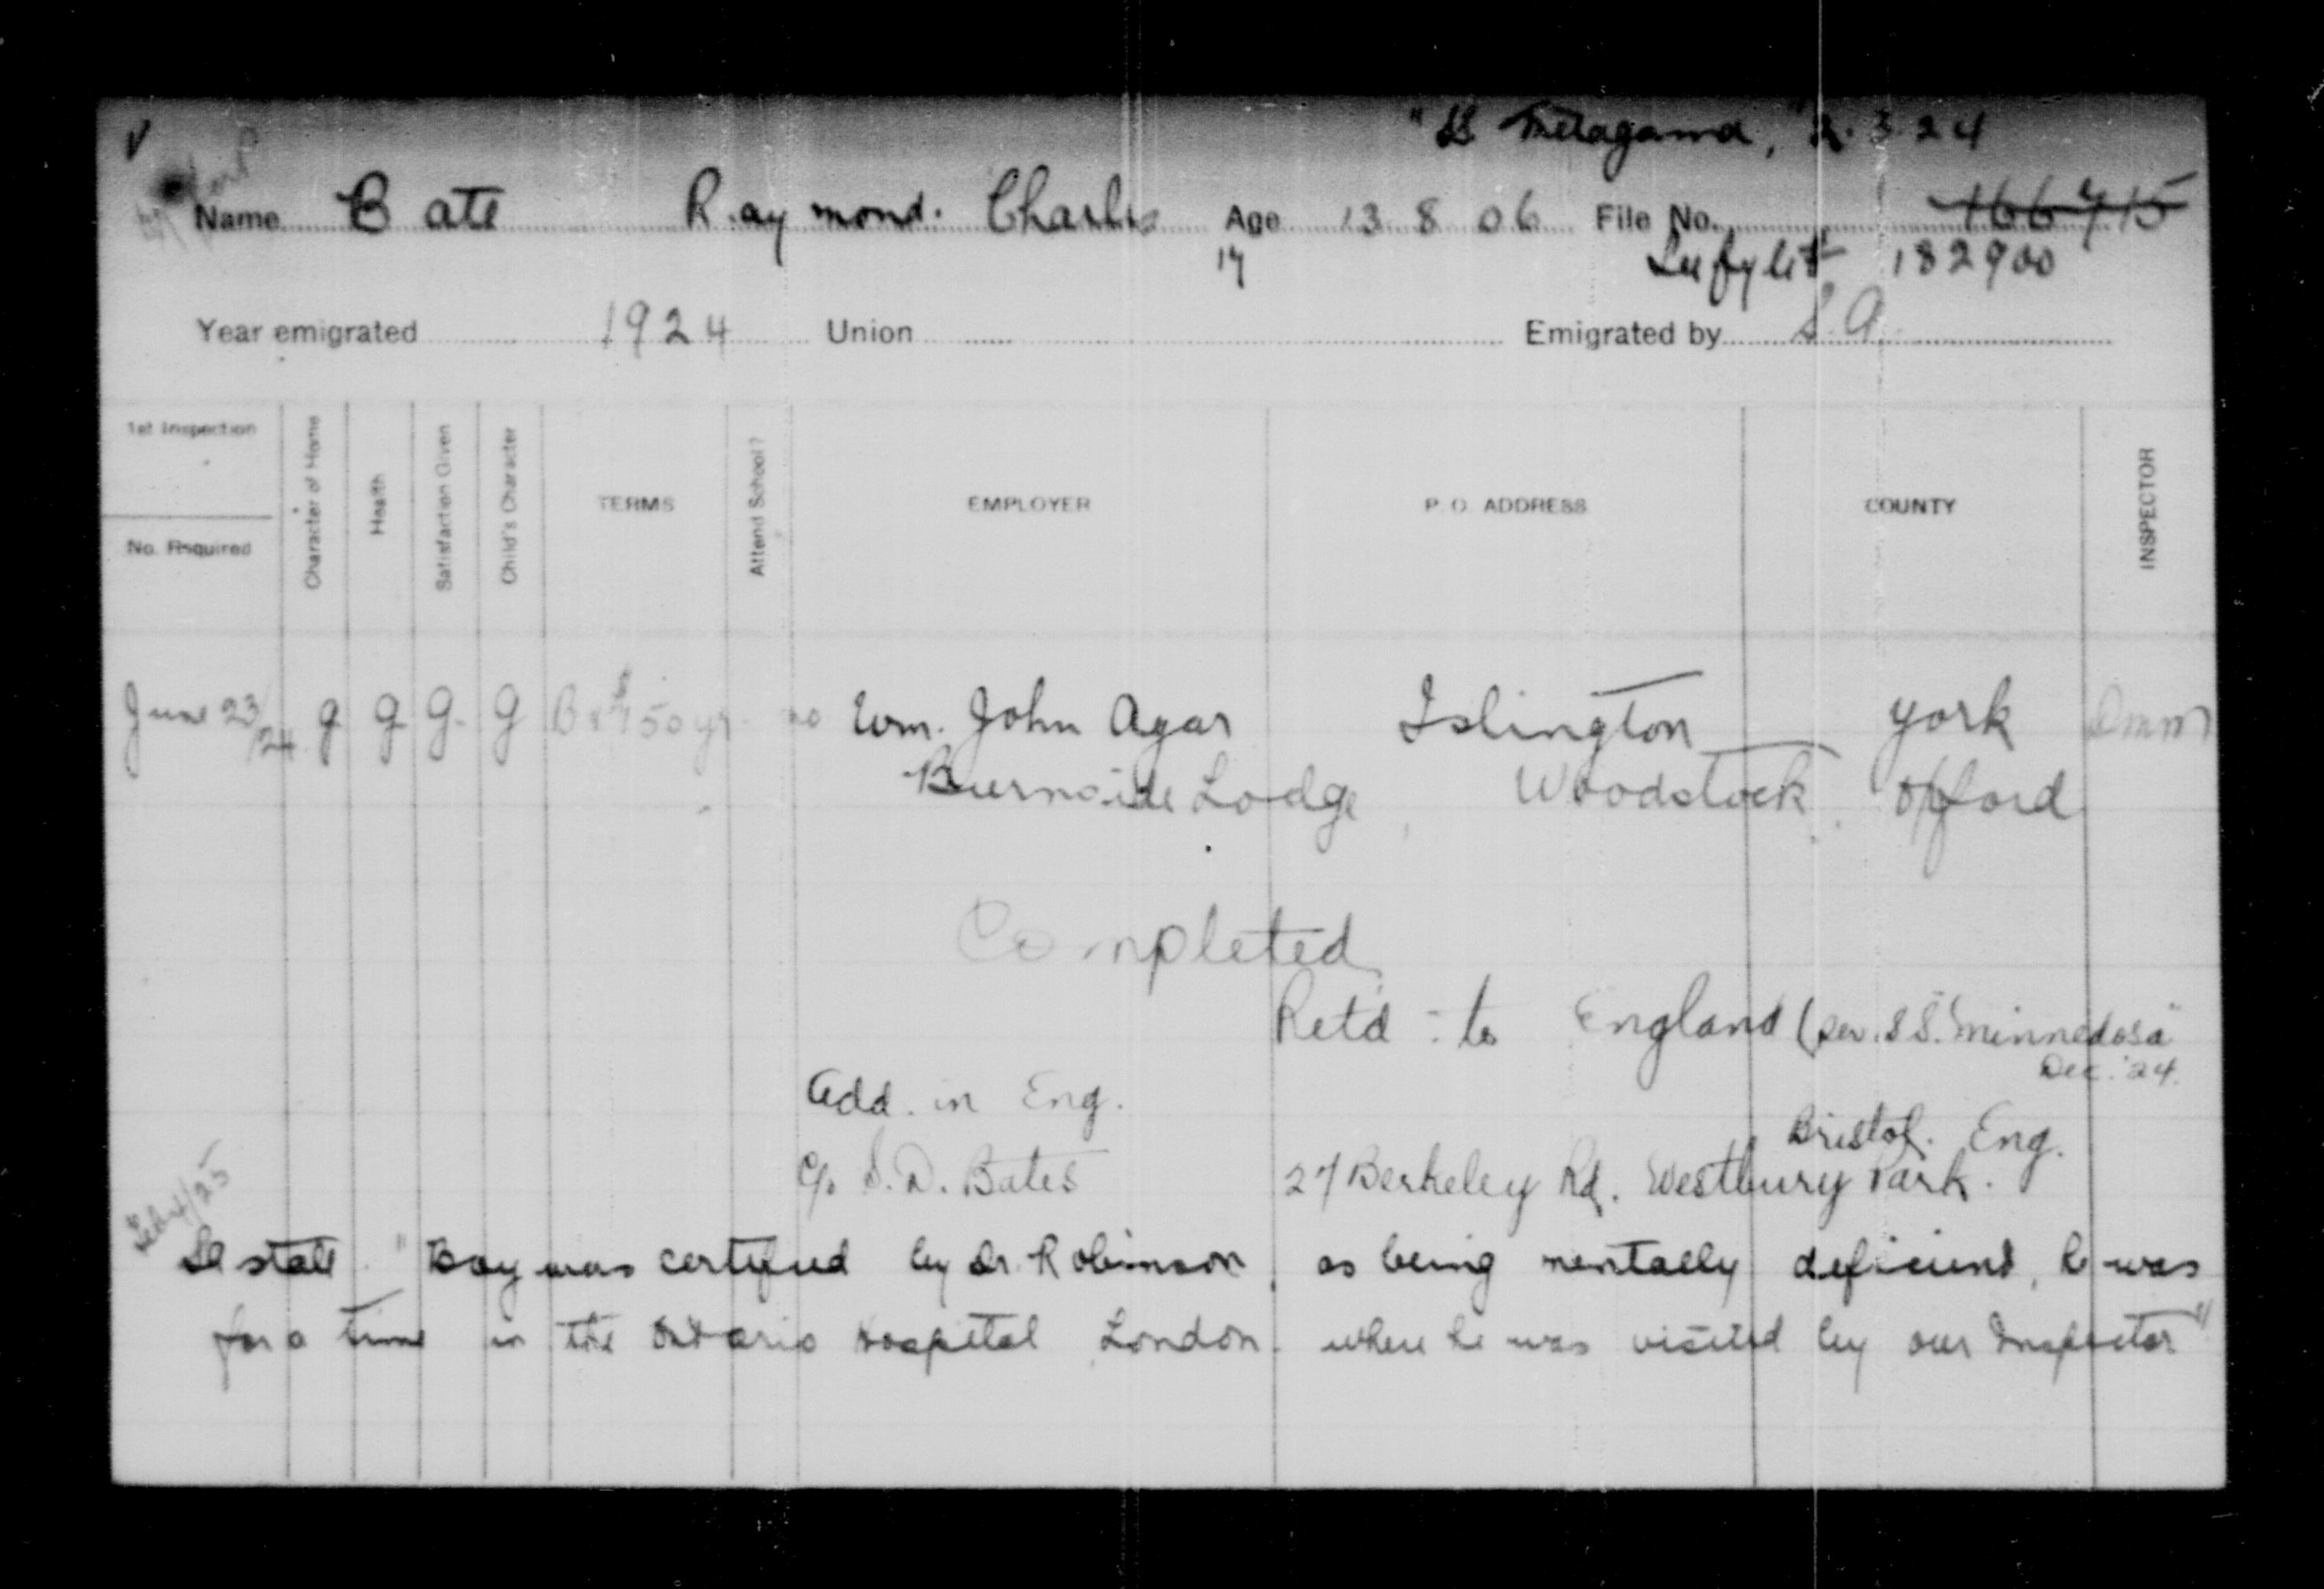 "SS Metagama," 2.3.24
Name Bate Raymond. Charles Age 13 8 06 File No. 166715
17 182900
Year emigrated 1924 Union Emigrated by S.A.
1st Inspection
No. Required
Character of Home
Health
Satisfaction Given
Child's Character
TERMS
Attend School?
EMPLOYER
P. O. ADDRESS
COUNTY
INSPECTOR
June 23/24 g g g g 150 yr no Wm. John Agar Islington York
Burnside Lodge Woodstock Oxford
Completed
Retd. to England (per. SS. "Minnedosa"
Dec. '24.
Add. in Eng.
Bristol. Eng.
c/o S. D. Bates 27 Berkeley Rd. Westbury Park.
Feb 4/25
SA state "Boy was certified by Dr. Robinson, as being mentally deficient, he was
for a time in the Ontario Hospital London. where he was visited by our Inspector"